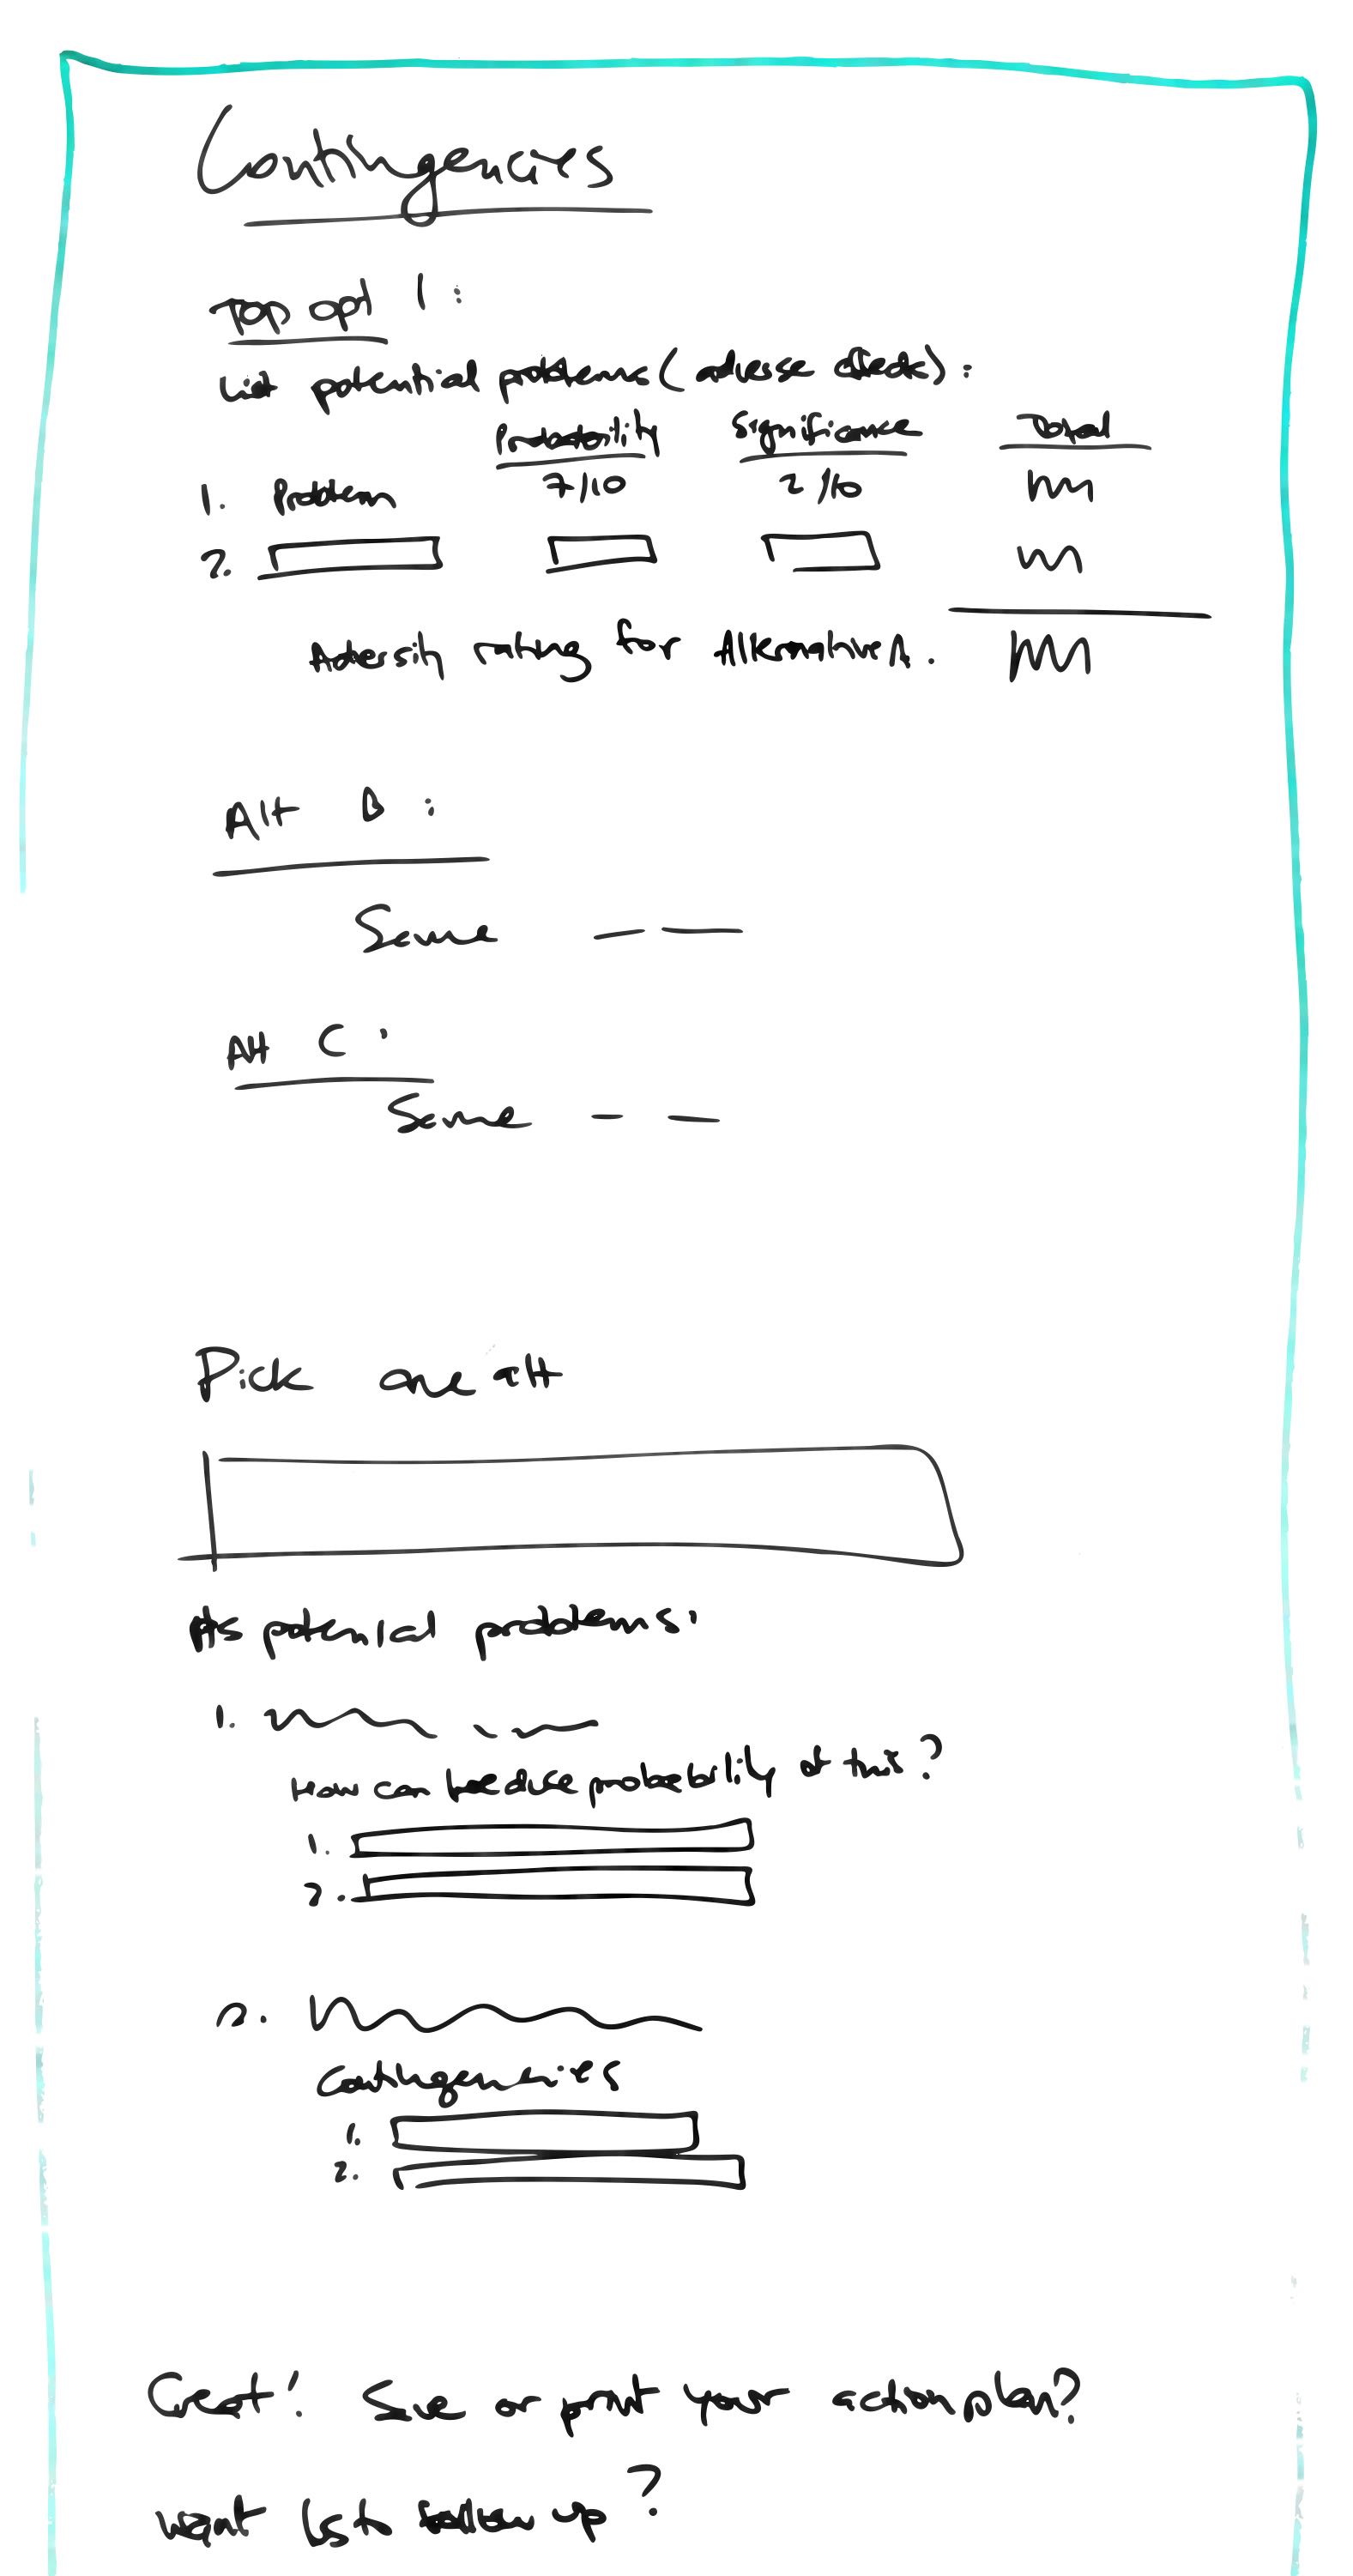 Contingencies
Top opt 1:
List potential problems (adverse effects):
Probability Significance Total
1. Problem 7/10 2/10
2.
Adersity rating for Alternative A.
Alt B:
Same — —
Alt C:
Same — —
Pick one alt
Its potenial problems:
1.
How can reduce probability of this?
1.
2.
2.
Contingencies
1.
2.
Great! Save or print your action plan?
want us to follow up?